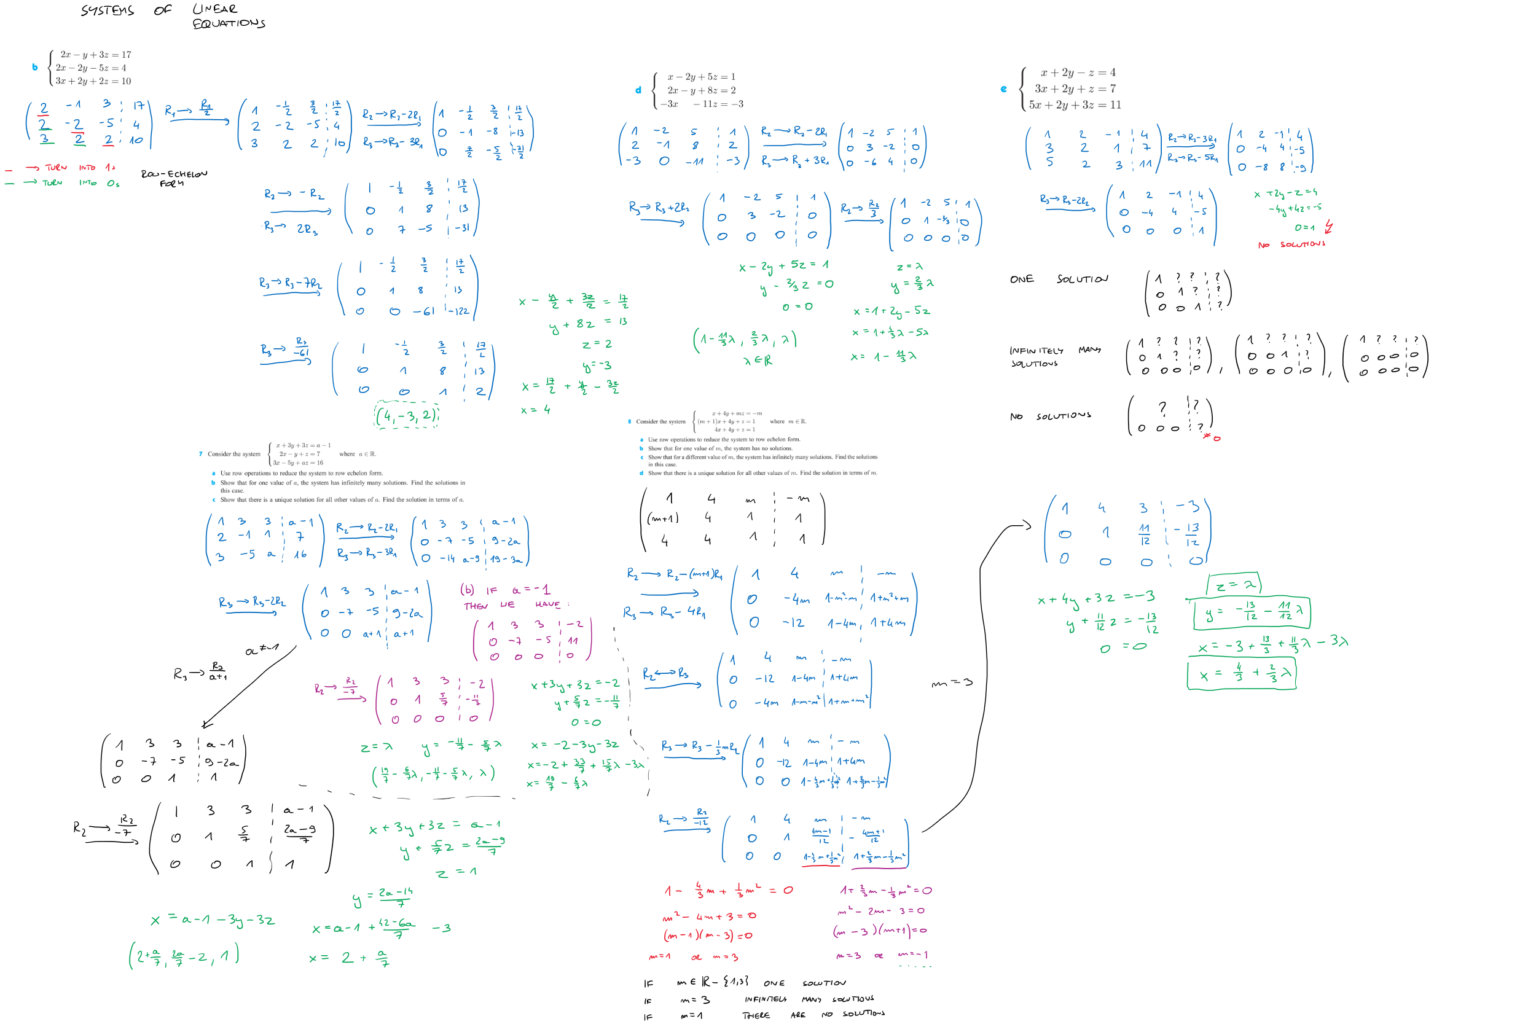 SYSTEMS OF LINEAR
EQUATIONS
b
2x − y + 3z = 17
2x − 2y − 5z = 4
3x + 2y + 2z = 10
2 -1 3 | 17
2 -2 -5 | 4
3 2 2 | 10
R₁ → R₁/2
1 -1/2 3/2 | 17/2
2 -2 -5 | 4
3 2 2 | 10
R₂ → R₂-2R₁
R₃ → R₃-3R₁
1 -1/2 3/2 | 17/2
0 -1 -8 | -13
0 7/2 -5/2 | -31/2
— → TURN INTO 1s
— → TURN INTO 0s
ROW-ECHELON
FORM
R₂ → -R₂
R₃ → 2R₃
1 -1/2 3/2 | 17/2
0 1 8 | 13
0 7 -5 | -31
R₃ → R₃-7R₂
1 -1/2 3/2 | 17/2
0 1 8 | 13
0 0 -61 | -122
R₃ → R₃/-61
1 -1/2 3/2 | 17/2
0 1 8 | 13
0 0 1 | 2
x - y/2 + 3z/2 = 17/2
y + 8z = 13
z = 2
y = -3
x = 17/2 + y/2 - 3z/2
x = 4
(4, -3, 2)
d
x − 2y + 5z = 1
2x − y + 8z = 2
−3x − 11z = −3
1 -2 5 | 1
2 -1 8 | 2
-3 0 -11 | -3
R₂ → R₂-2R₁
R₃ → R₃+3R₁
1 -2 5 | 1
0 3 -2 | 0
0 -6 4 | 0
R₃ → R₃+2R₂
1 -2 5 | 1
0 3 -2 | 0
0 0 0 | 0
R₂ → R₂/3
1 -2 5 | 1
0 1 -2/3 | 0
0 0 0 | 0
x - 2y + 5z = 1
y - 2/3 z = 0
0 = 0
z = λ
y = 2/3 λ
x = 1+2y-5z
x = 1+4/3 λ-5λ
x = 1 - 11/3 λ
(1-11/3 λ, 2/3 λ, λ)
λ∈ℝ
e
x + 2y − z = 4
3x + 2y + z = 7
5x + 2y + 3z = 11
1 2 -1 | 4
3 2 1 | 7
5 2 3 | 11
R₂→R₂-3R₁
R₃→R₃-5R₁
1 2 -1 | 4
0 -4 4 | -5
0 -8 8 | -9
R₃→R₃-2R₂
1 2 -1 | 4
0 -4 4 | -5
0 0 0 | 1
x +2y-z=4
-4y+4z=-5
0=1
NO SOLUTIONS
ONE SOLUTION
1 ? ? | ?
0 1 ? | ?
0 0 1 | ?
INFINITELY MANY
SOLUTIONS
1 ? ? | ?
0 1 ? | ?
0 0 0 | 0
,
1 ? ? | ?
0 0 1 | ?
0 0 0 | 0
,
1 ? ? | ?
0 0 0 | 0
0 0 0 | 0
NO SOLUTIONS
? | ?
0 0 0 | ?
≠0
7 Consider the system
x + 3y + 3z = a − 1
2x − y + z = 7
3x − 5y + az = 16
where a ∈ ℝ.
a Use row operations to reduce the system to row echelon form.
b Show that for one value of a, the system has infinitely many solutions. Find the solutions in
this case.
c Show that there is a unique solution for all other values of a. Find the solution in terms of a.
1 3 3 | a-1
2 -1 1 | 7
3 -5 a | 16
R₂ → R₂-2R₁
R₃ → R₃-3R₁
1 3 3 | a-1
0 -7 -5 | 9-2a
0 -14 a-9 | 19-3a
R₃ → R₃-2R₂
1 3 3 | a-1
0 -7 -5 | 9-2a
0 0 a+1 | a+1
(b) IF a=-1
THEN WE HAVE:
1 3 3 | -2
0 -7 -5 | 11
0 0 0 | 0
R₂ → R₂/-7
1 3 3 | -2
0 1 5/7 | -11/7
0 0 0 | 0
x+3y+3z=-2
y+5/7 z=-11/7
0=0
z = λ y = -11/7 - 5/7 λ
x = -2-3y-3z
x=-2+33/7+15/7 λ-3λ
x= 19/7 - 6/7 λ
(19/7 - 6/7 λ, -11/7 - 5/7 λ, λ)
a≠-1
R₃ → R₃/a+1
1 3 3 | a-1
0 -7 -5 | 9-2a
0 0 1 | 1
R₂ → R₂/-7
1 3 3 | a-1
0 1 5/7 | 2a-9/7
0 0 1 | 1
x+3y+3z = a-1
y + 5/7 z = 2a-9/7
z = 1
y = 2a-14/7
x = a-1-3y-3z
x=a-1+ 42-6a/7 -3
x= 2 + a/7
(2+a/7, 2a/7-2, 1)
8 Consider the system
x + 4y + mz = −m
(m + 1)x + 4y + z = 1
4x + 4y + z = 1
where m ∈ ℝ.
a Use row operations to reduce the system to row echelon form.
b Show that for one value of m, the system has no solutions.
c Show that for a different value of m, the system has infinitely many solutions. Find the solutions
in this case.
d Show that there is a unique solution for all other values of m. Find the solution in terms of m.
1 4 m | -m
(m+1) 4 1 | 1
4 4 1 | 1
R₂ → R₂-(m+1)R₁
R₃ → R₃-4R₁
1 4 m | -m
0 -4m 1-m²-m | 1+m²+m
0 -12 1-4m | 1+4m
R₂ ↔ R₃
1 4 m | -m
0 -12 1-4m | 1+4m
0 -4m 1-m-m² | 1+m+m²
R₃ → R₃-1/3 mR₂
1 4 m | -m
0 -12 1-4m | 1+4m
0 0 1-4/3m+1/3m² | 1+2/3m-1/3m²
R₂ → R₂/-12
1 4 m | -m
0 1 4m-1/12 | -4m+1/12
0 0 1-4/3m+1/3m² | 1+2/3m-1/3m²
1 - 4/3 m + 1/3 m² = 0
m² - 4m + 3 = 0
(m-1)(m-3)=0
m=1 or m=3
1+2/3 m-1/3 m²=0
m²-2m-3=0
(m-3)(m+1)=0
m=3 or m=-1
IF m∈ℝ-{1,3} ONE SOLUTION
IF m=3 INFINITELY MANY SOLUTIONS
IF m=1 THERE ARE NO SOLUTIONS
m=3
1 4 3 | -3
0 1 11/12 | -13/12
0 0 0 | 0
x+4y+3z=-3
y+11/12 z=-13/12
0=0
z=λ
y= -13/12 - 11/12 λ
x=-3+13/3+11/3 λ-3λ
x= 4/3 + 2/3 λ